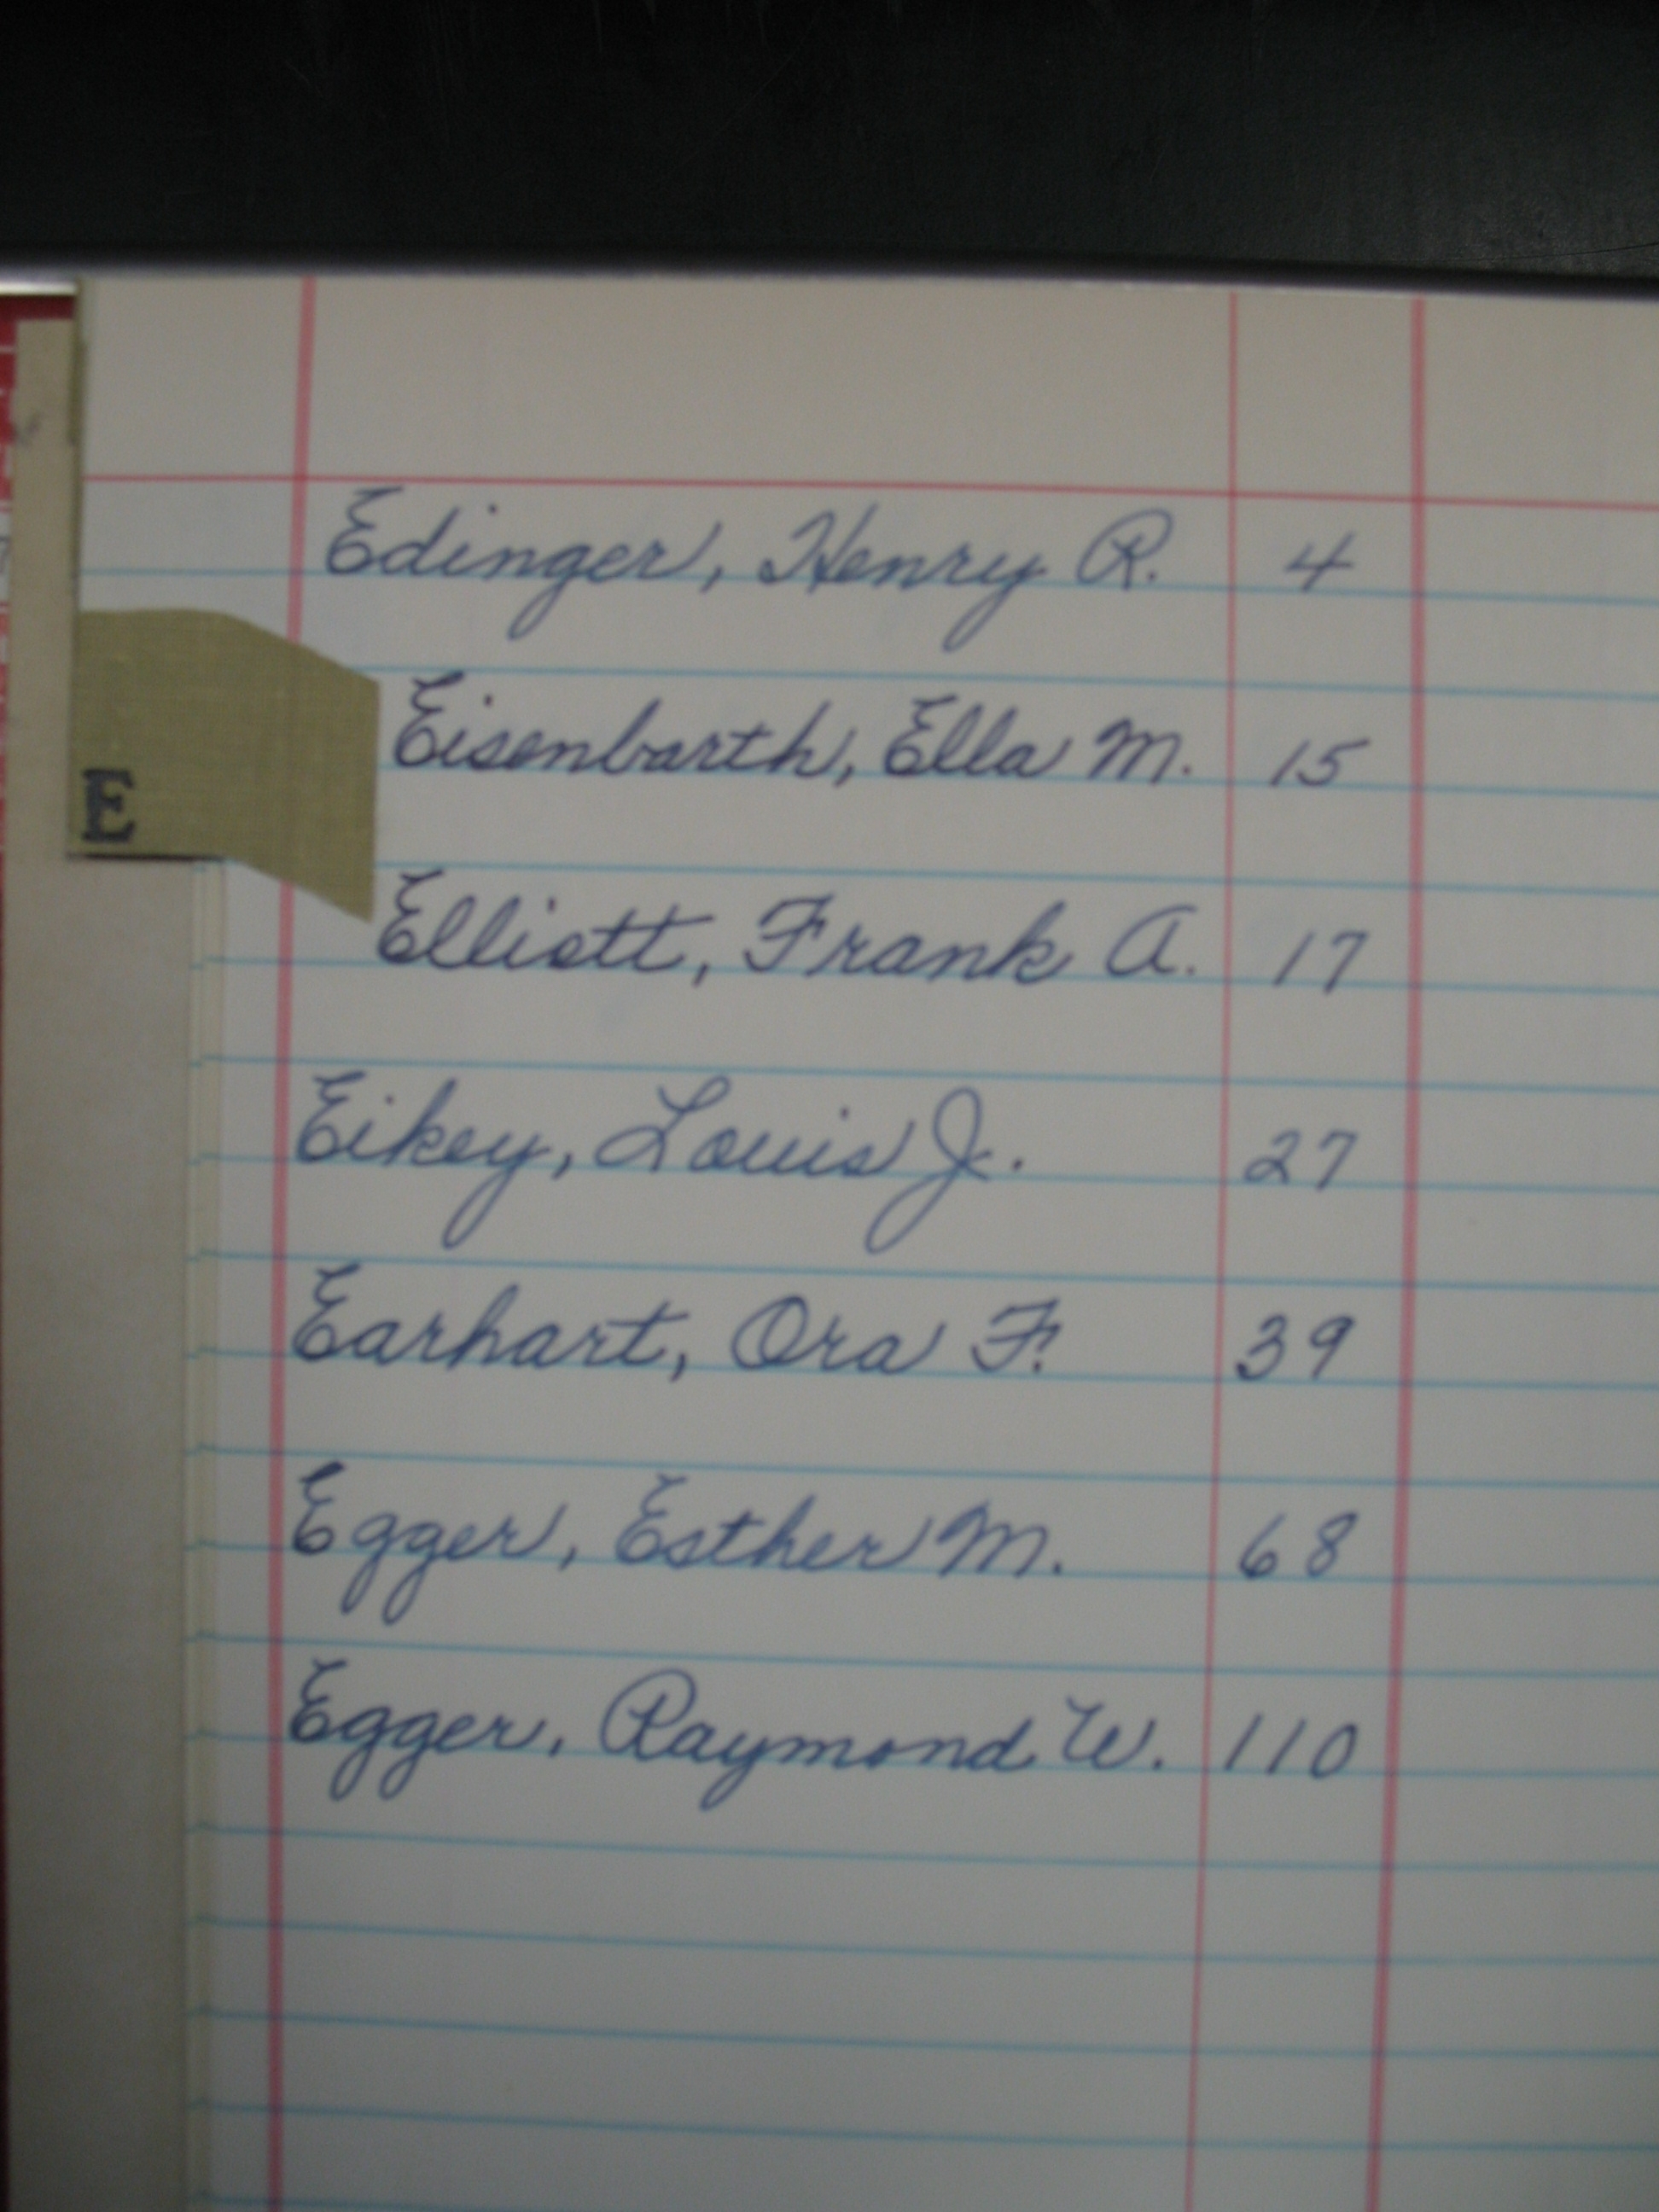 Edinger, Henry R. 4
Eisenbarth, Ella M. 15
E
Elliott, Frank A. 17
Eikey, Louis J. 27
Earhart, Ora F. 39
Egger, Esther M. 68
Egger, Raymond W. 110